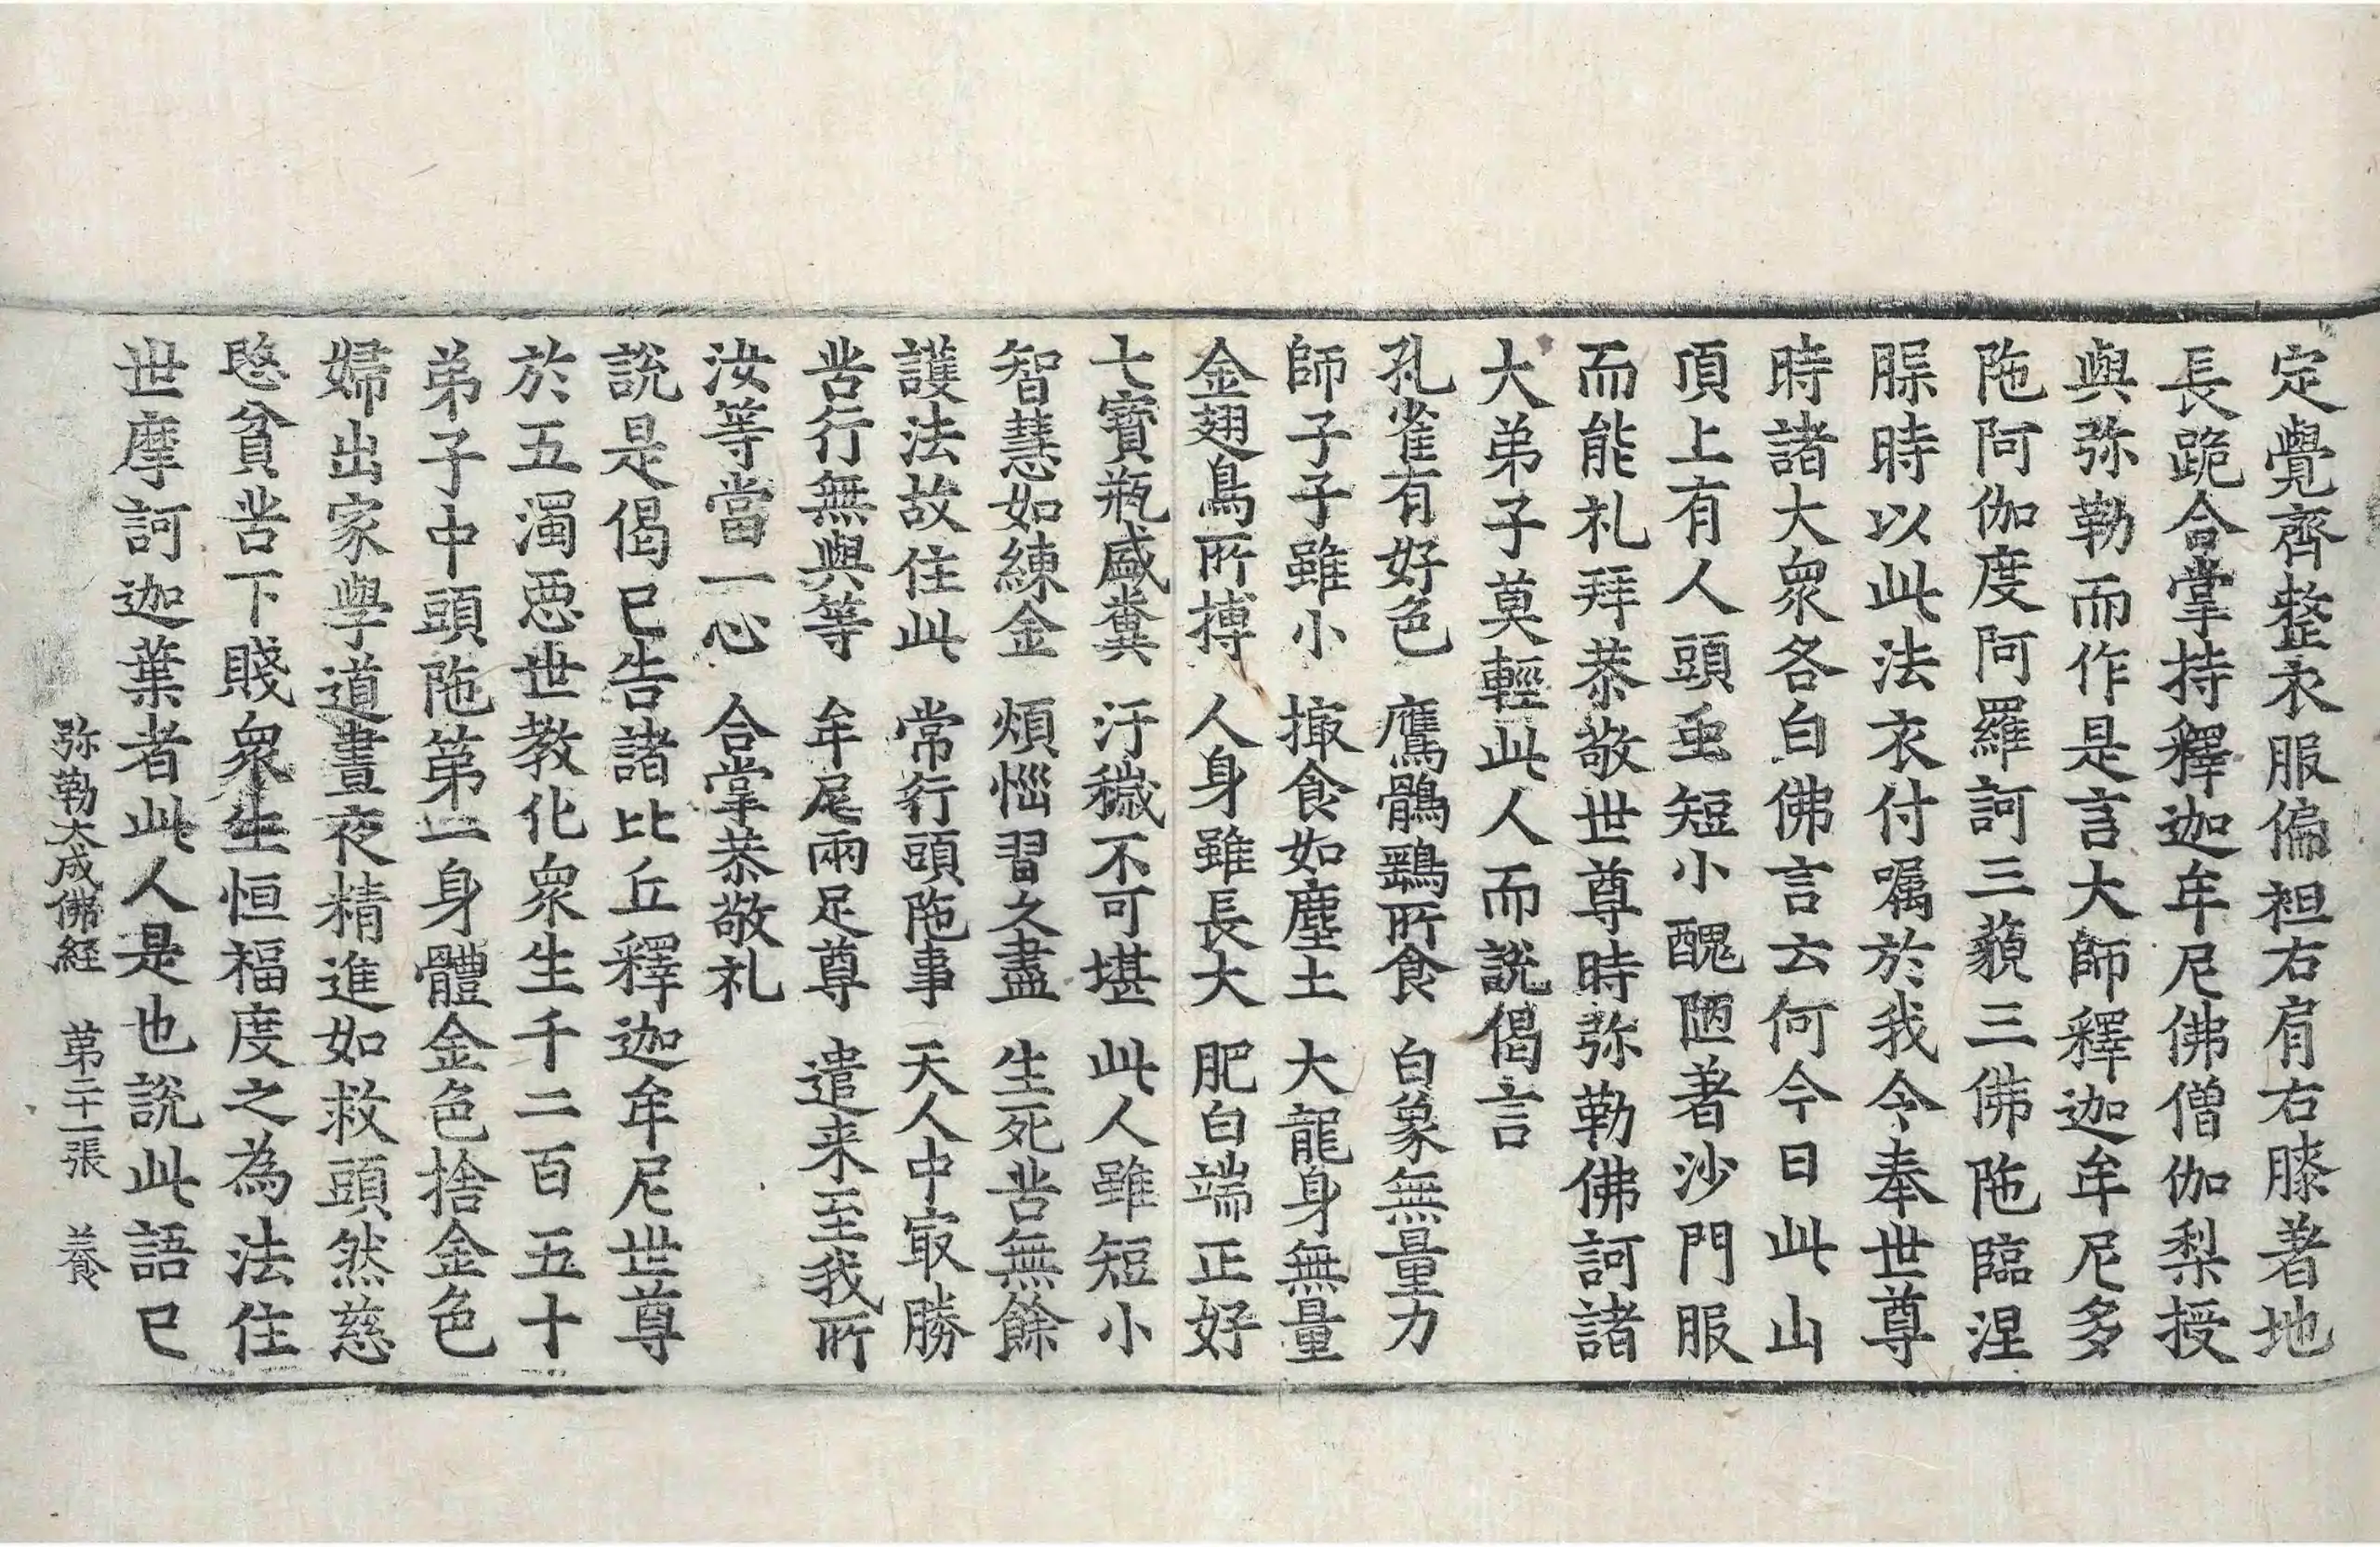 定覺齊整衣服偏袒右肩右膝著地
長跪合掌持釋迦牟尼佛僧伽梨授
與弥勒而作是言大師釋迦牟尼多
陁阿伽度阿羅訶三藐三佛陁臨涅
㬵時以此法衣付嘱於我令奉世尊
時諸大衆各白佛言云何今日此山
頂上有人頭䖝短小醜陋著沙門服
而能礼拜恭敬世尊時弥勒佛訶諸
大弟子莫輕此人而說偈言
孔雀有好色 鷹鶻鷂所食 白象無量力
師子子雖小 撮食如塵土 大龍身無量
金翅鳥所搏 人身雖長大 肥白端正好
七寶瓶盛糞 汙穢不可堪 此人雖短小
智慧如練金 煩惱習久盡 生死苦無餘
護法故住此 常行頭陁事 天人中㝡勝
苦行無與等 牟尼兩足尊 遣来至我所
汝等當一心 合掌恭敬礼
說是偈已告諸比丘釋迦牟尼世尊
於五濁惡世教化衆生千二百五十
弟子中頭陁第一身體金色捨金色
婦出家學道晝夜精進如救頭然慈
愍貧苦下賤衆生恒福度之為法住
世摩訶迦葉者此人是也說此語已
弥勒大成佛経 第二十一張 養